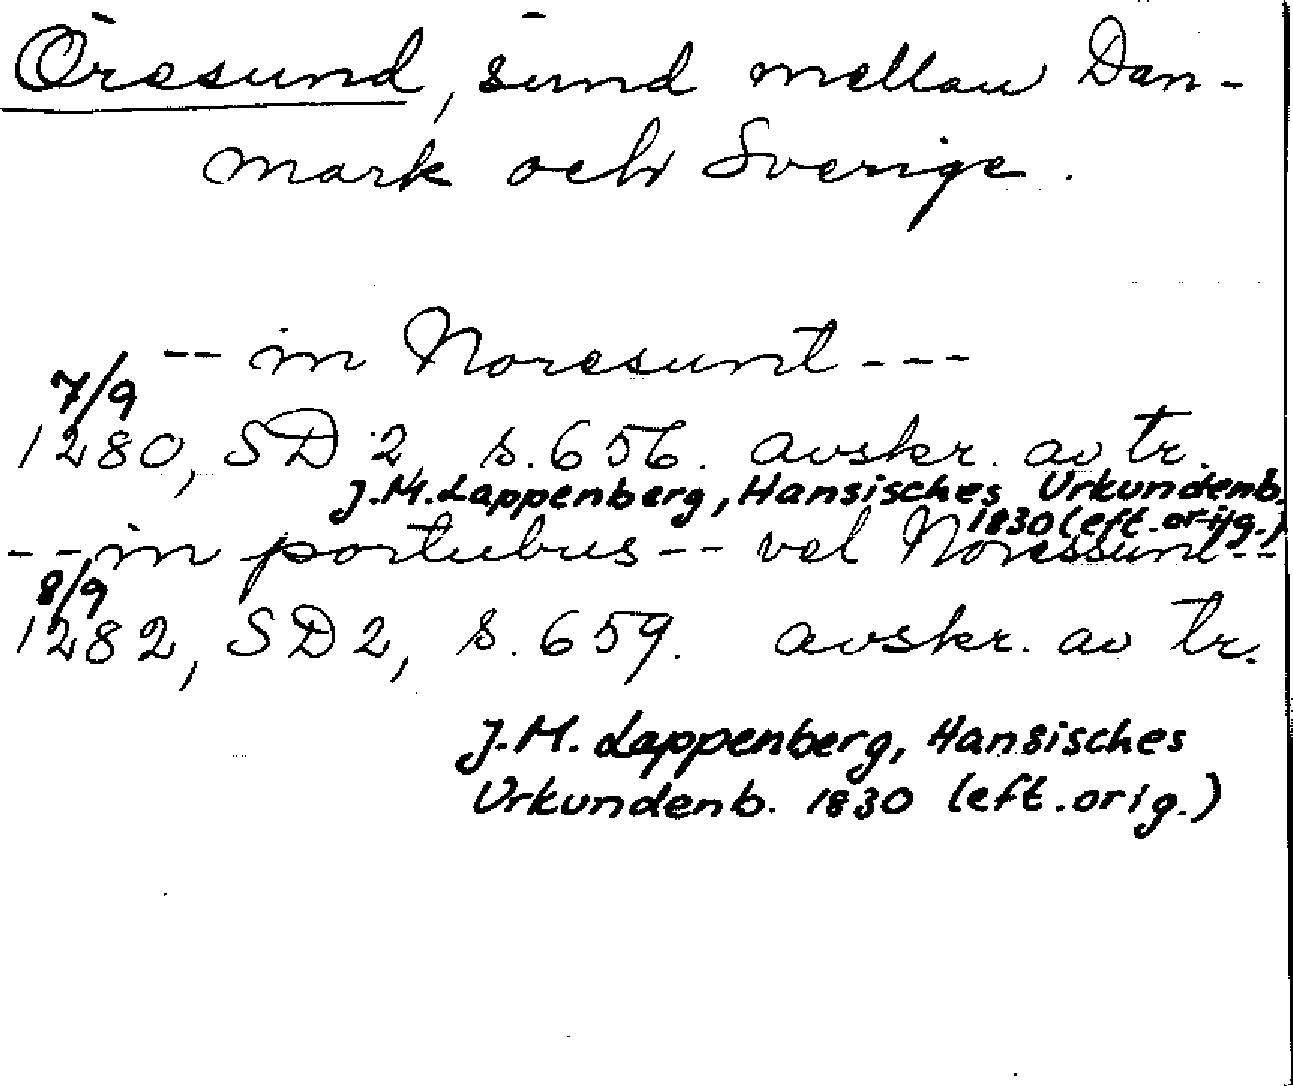 Öresund, sund mellan Dan-
mark och Sverige.
-- in Noresunt ---
7/9
1280, SD 2, s. 656. avskr. av tr.
J.M. Lappenberg, Hansisches Urkundenb.
1830 (eft. orig.)
-- in portubus -- vel Noressunt --
8/9
1282, SD 2, s. 659. avskr. av tr.
J.M. Lappenberg, Hansisches
Urkundenb. 1830 (eft. orig.)